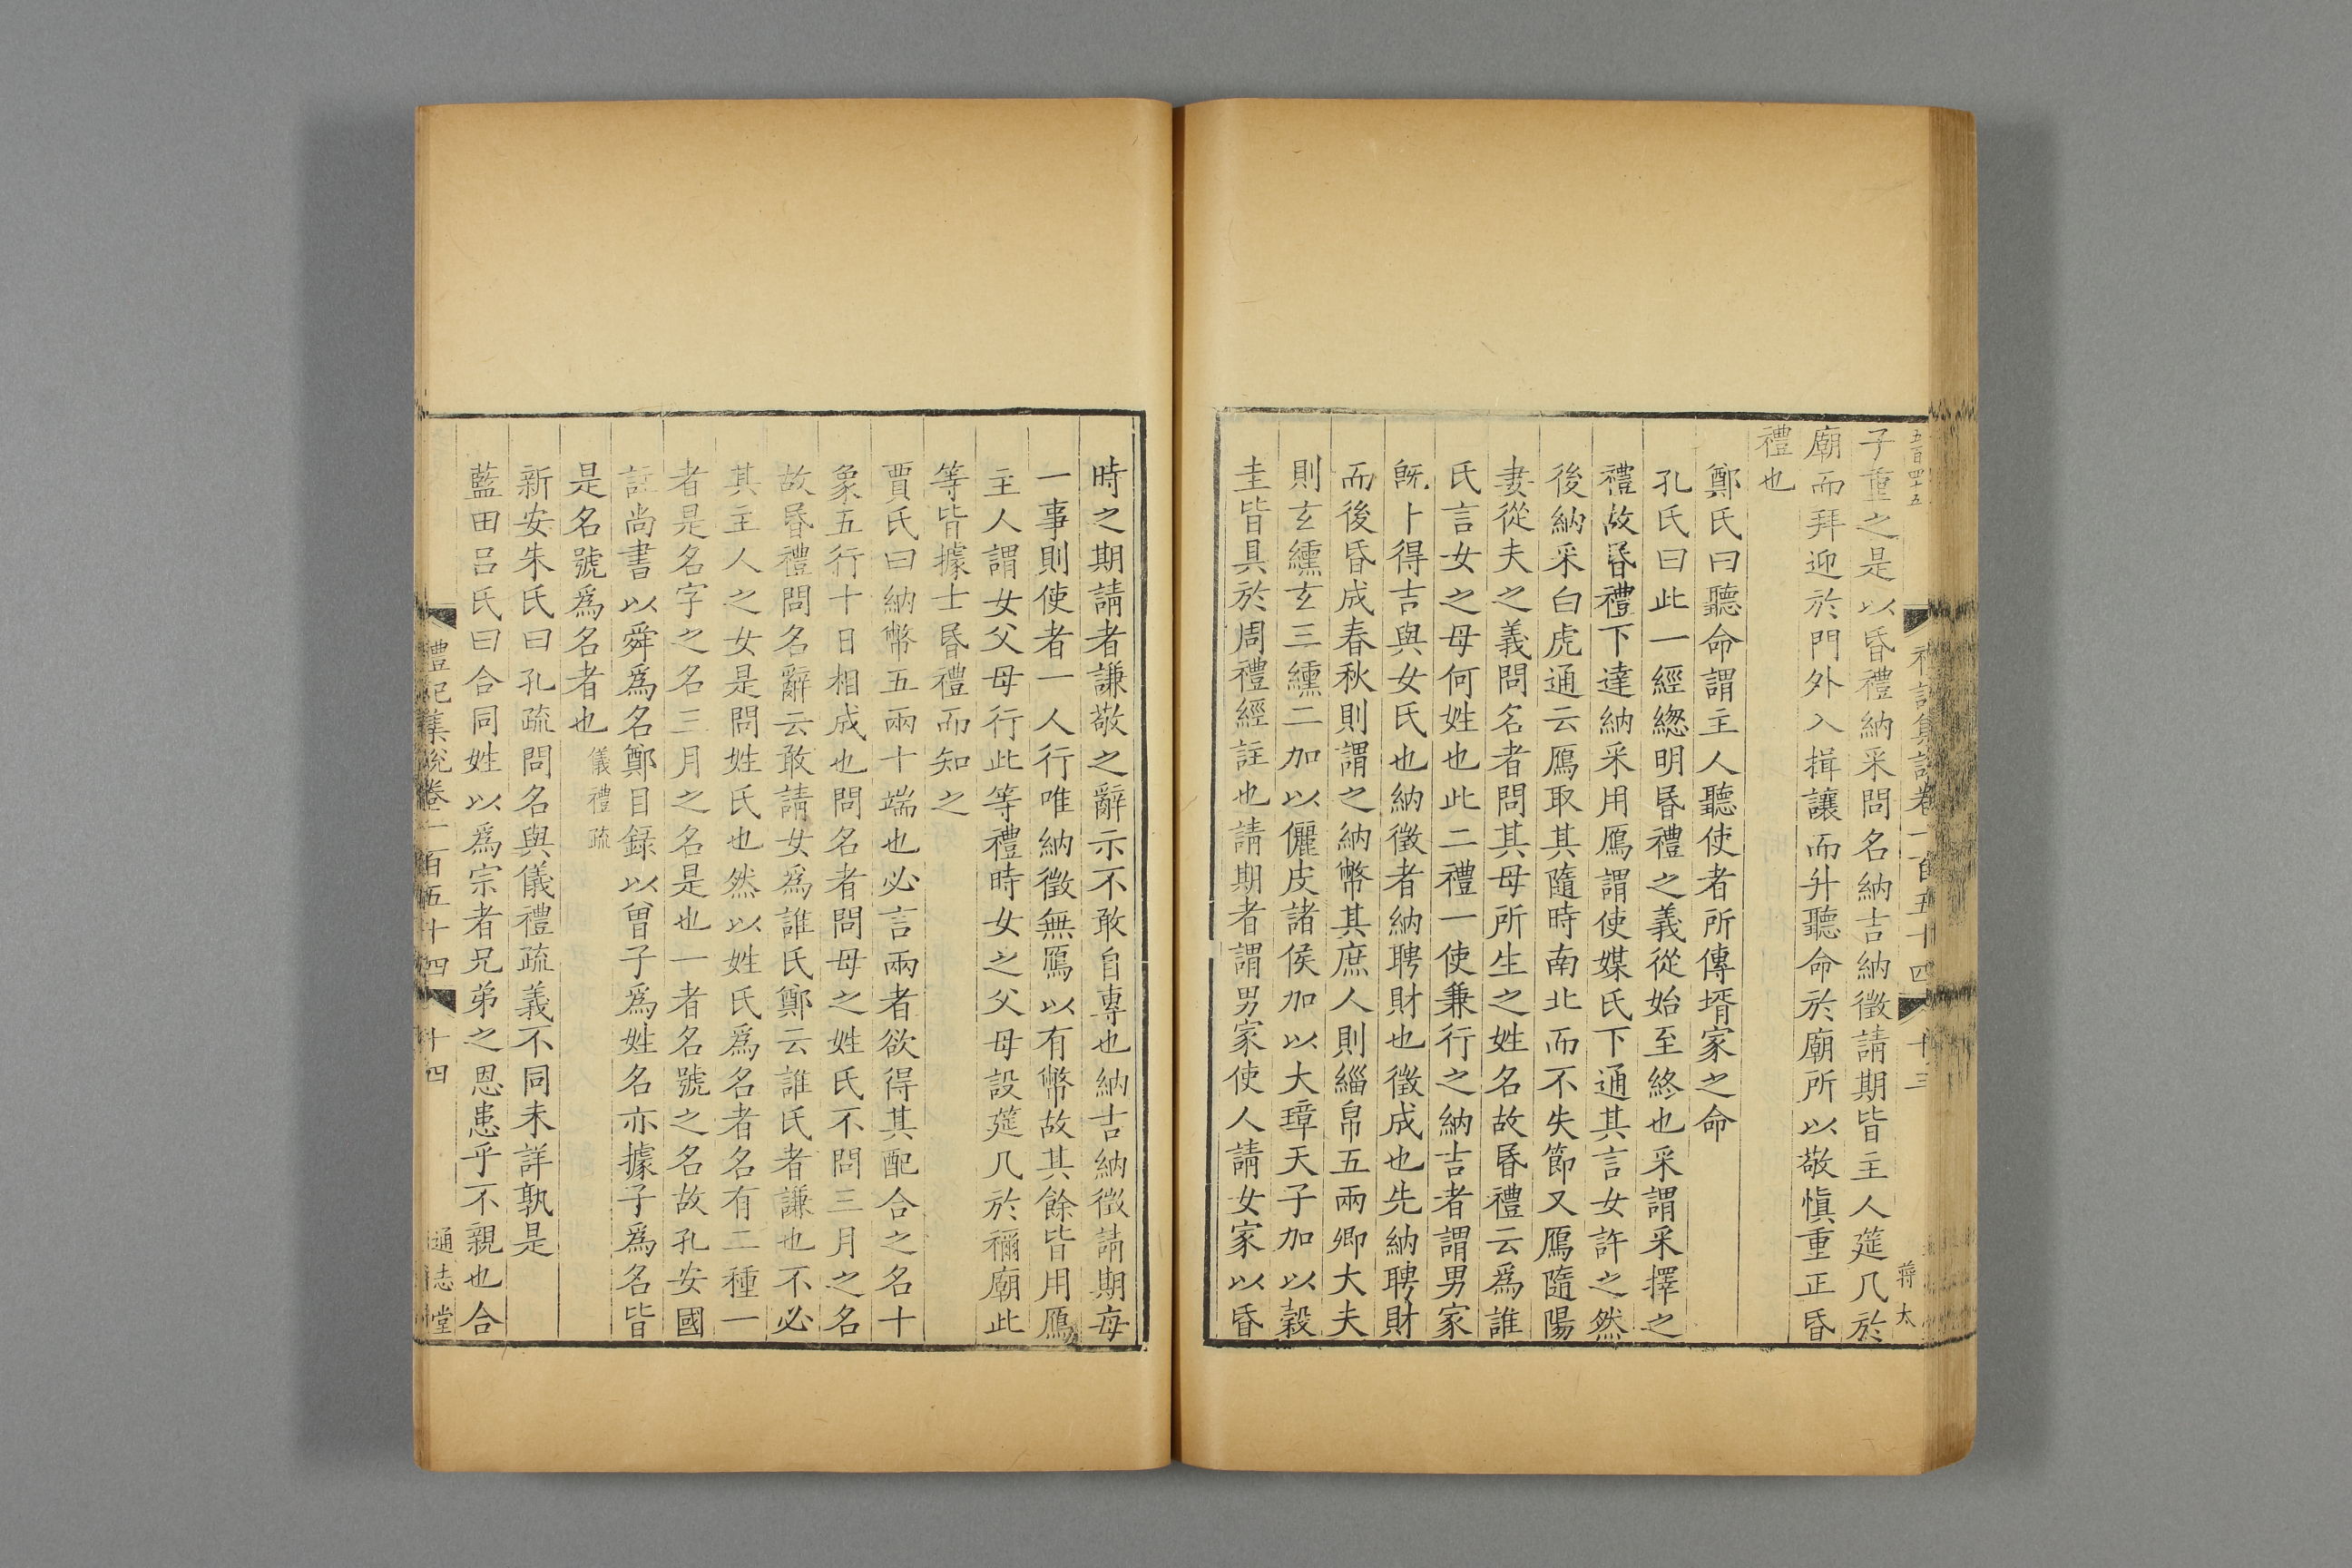 五百四十五
禮記集說卷一百五十四
十三
蔣太
子重之是以昏禮納采問名納吉納徵請期皆主人筵几於
廟而拜迎於門外入揖讓而升聽命於廟所以敬慎重正昏
禮也
鄭氏曰聽命謂主人聽使者所傳壻家之命
孔氏曰此一經緫明昬禮之義從始至終也采謂采擇之
禮故昬禮下達納采用鴈謂使媒氏下通其言女許之然
後納采白虎通云鴈取其隨時南北而不失節又鴈隨陽
妻從夫之義問名者問其母所生之姓名故昬禮云爲誰
氏言女之母何姓也此二禮一使兼行之納吉者謂男家
旣卜得吉與女氏也納徵者納聘財也徵成也先納聘財
而後昏成春秋則謂之納幣其庶人則緇帛五兩卿大夫
則玄纁玄三纁二加以儷皮諸侯加以大璋天子加以穀
圭皆具於周禮經註也請期者謂男家使人請女家以昏
時之期請者謙敬之辭示不敢自專也納吉納徵請期每
一事則使者一人行唯納徵無鴈以有幣故其餘皆用鴈
主人謂女父母行此等禮時女之父母設筵几於禰廟此
等皆據士昬禮而知之
賈氏曰納幣五兩十端也必言兩者欲得其配合之名十
象五行十日相成也問名者問母之姓氏不問三月之名
故昬禮問名辭云敢請女爲誰氏鄭云誰氏者謙也不必
其主人之女是問姓氏也然以姓氏爲名者名有二種一
者是名字之名三月之名是也一者名號之名故孔安國
註尚書以舜爲名鄭目録以曾子爲姓名亦據子爲名皆
是名號爲名者也儀禮疏
新安朱氏曰孔疏問名與儀禮疏義不同未詳孰是
藍田呂氏曰合同姓以爲宗者兄弟之恩患乎不親也合
禮記集說卷一百五十四
十四
通志堂